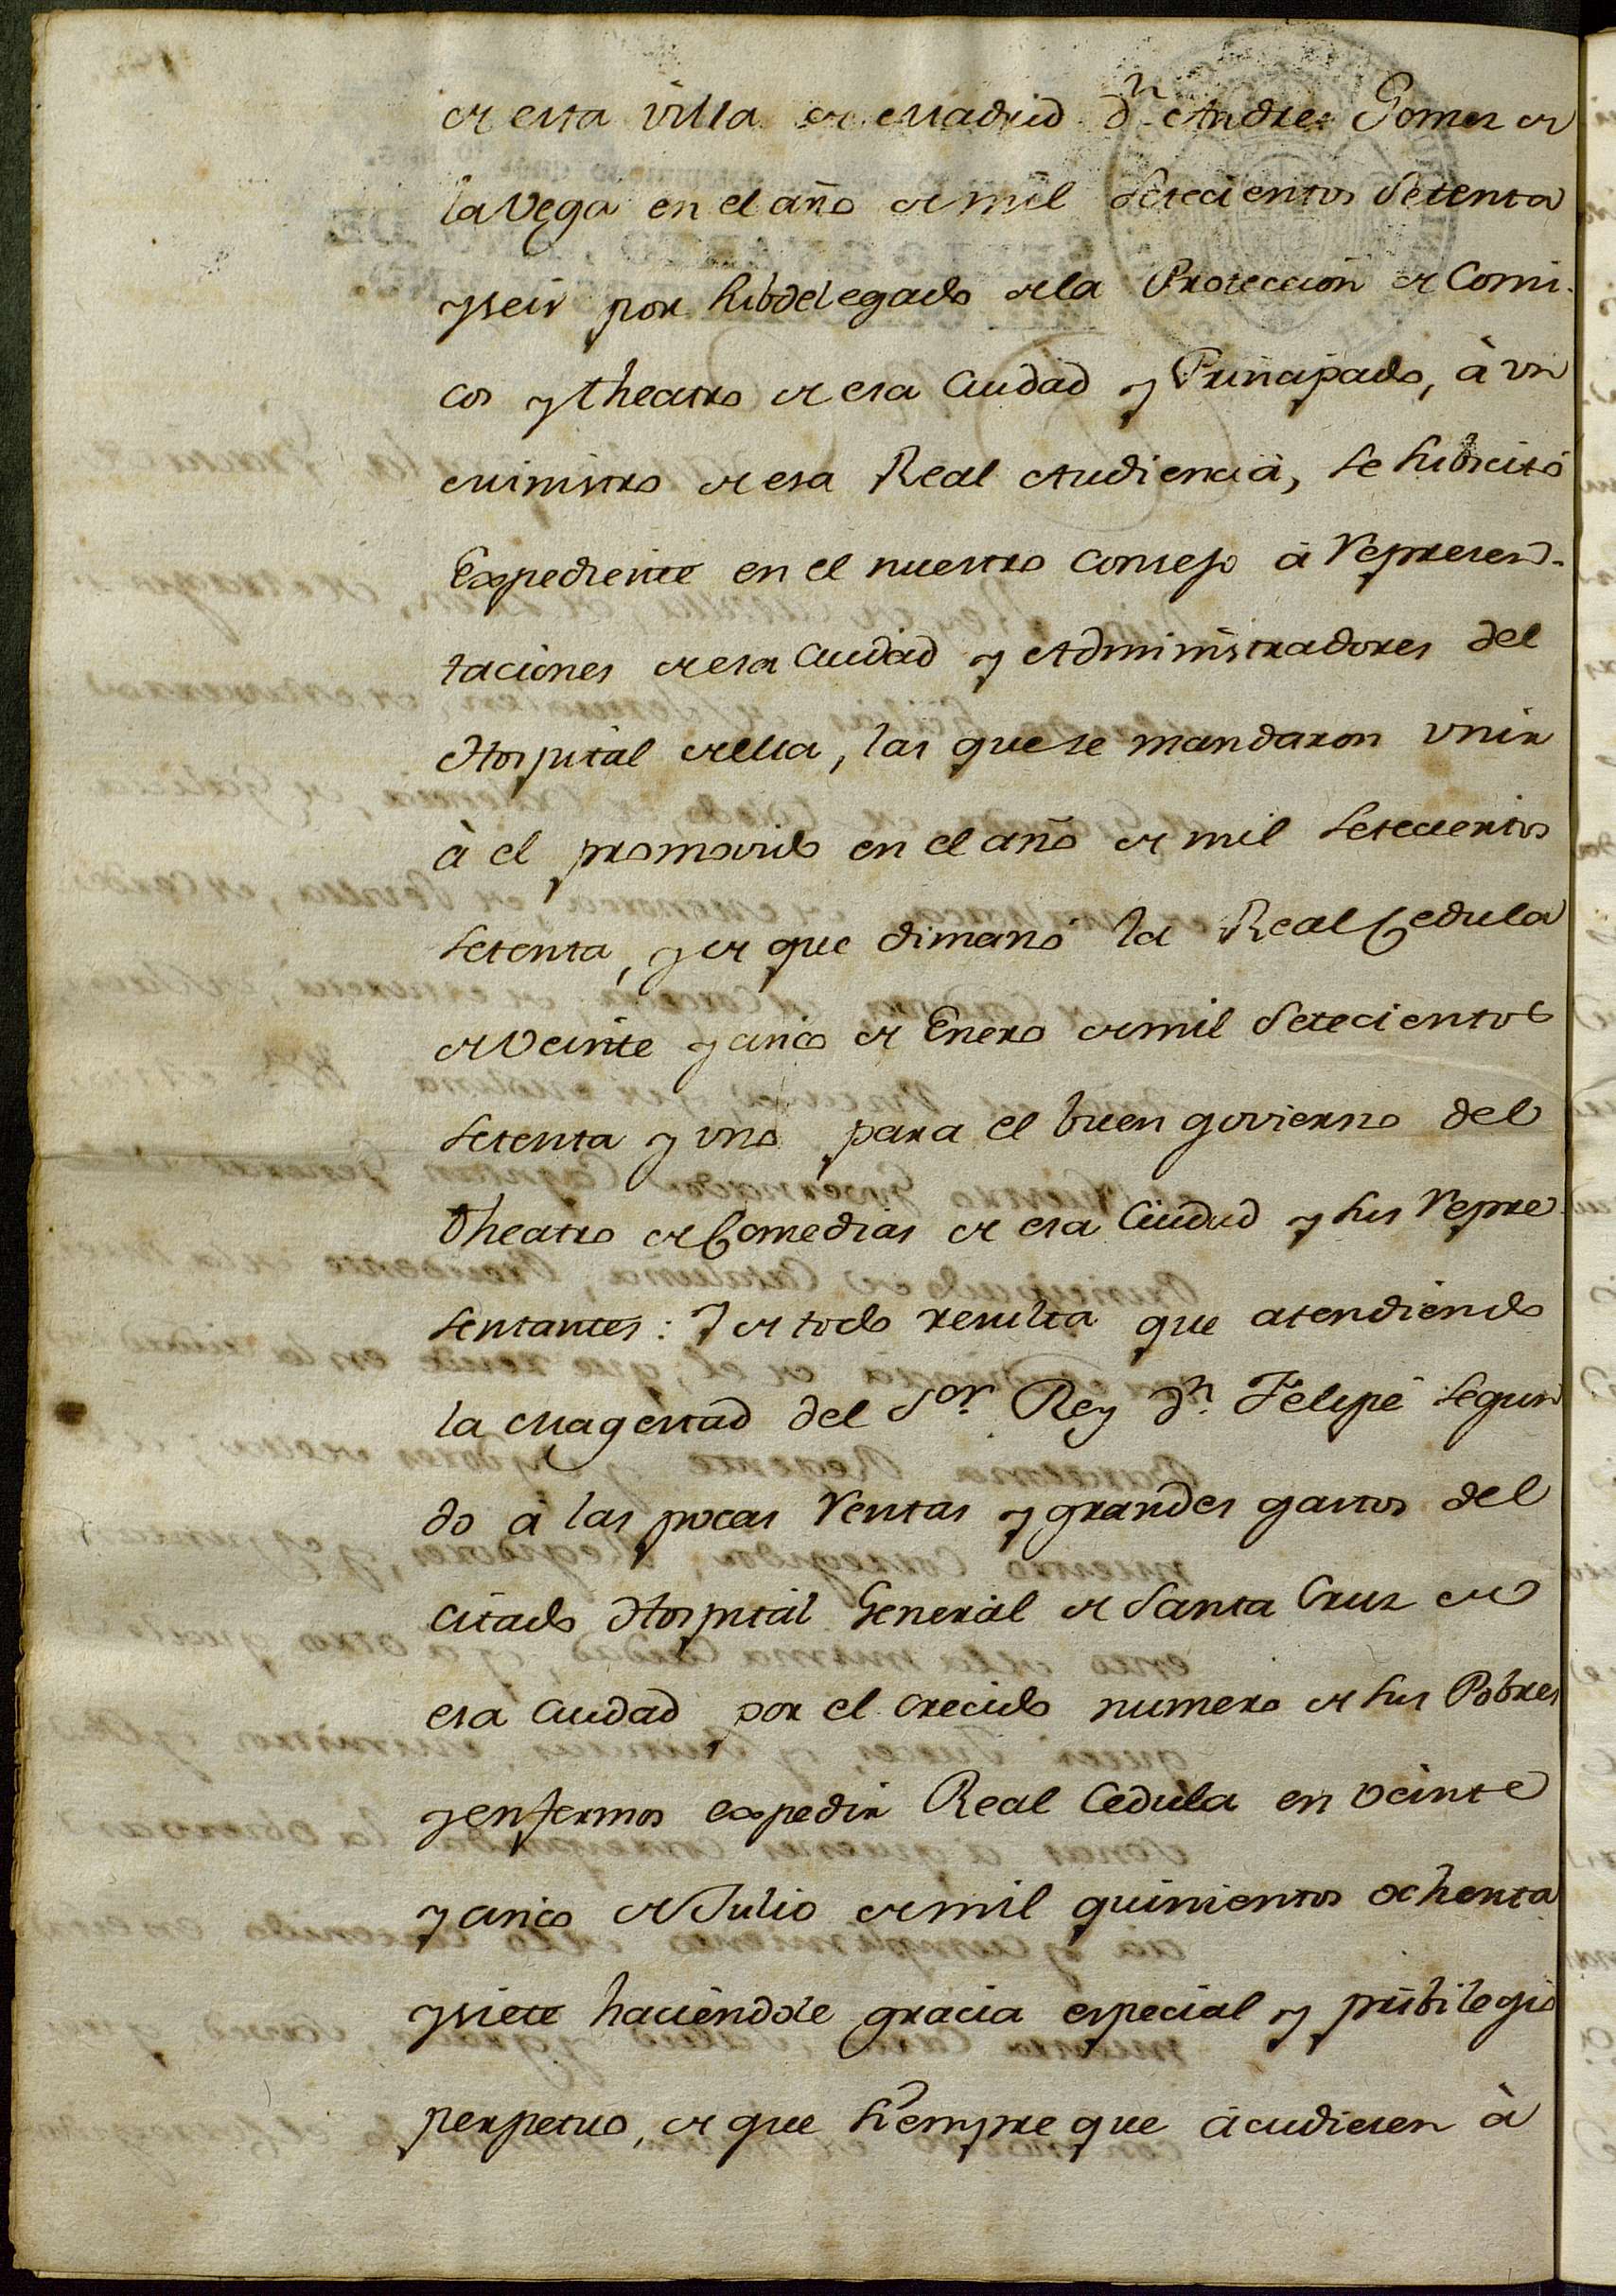 de esta Villa de Madrid dn Andres Gomez de
la Vega en el año de mil setecientos setenta
y seis por subdelegado de la Proteccion de Comi-
cos y theatro de esa Ciudad y Principado, à un
Ministro de esa Real Audiencia, se subscitó
Expediente en el nuestro Consejo à represen-
taciones de esa Ciudad y Administradores del
Hospital de ella, las que se mandaron unir
à el promovido en el año de mil setecientos
setenta, y de que dimanó la Real Cedula
de veinte y cinco de Enero de mil setecientos
setenta y uno para el buen govierno del
theatro de Comedias de esa Ciudad y sus repre
sentantes: Y de todo resulta que atendiendo
la Magestad del Sor. Rey Dn. Felipe segun
do à las pocas rentas y grandes gastos del
citado Hospital General de Santa Cruz de
esa Ciudad por el crecido numero de sus Pobres
y enfermos expedir Real Cedula en veinte
y cinco de Julio de mil quinientos ochenta
y siete haciendole gracia especial y pribilegio
perpetuo, de que siempre que acudiesen à